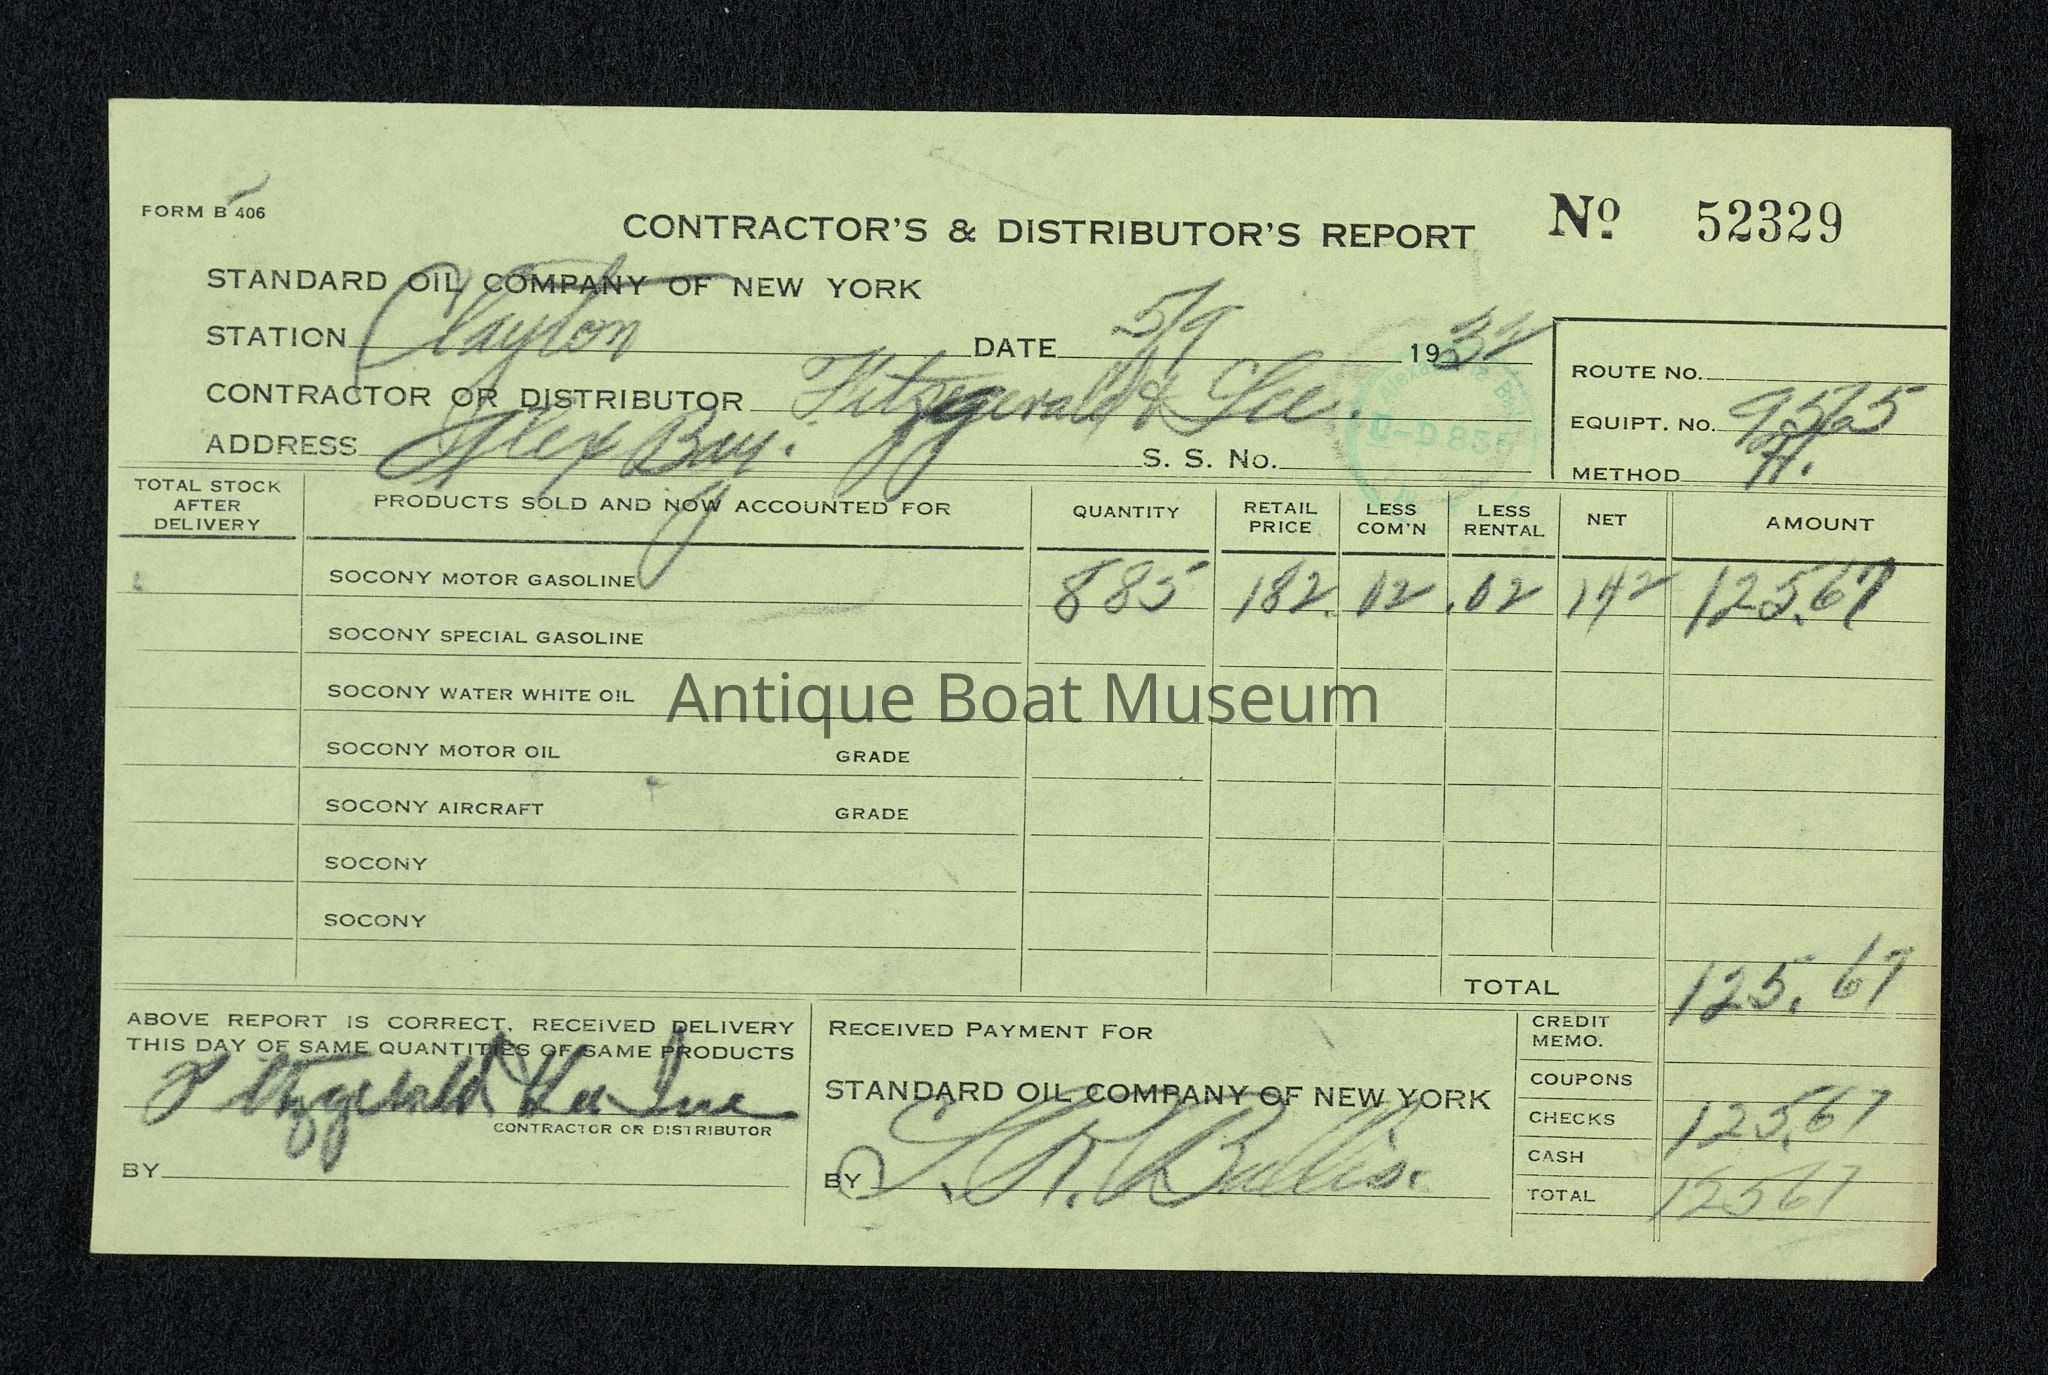 FORM B 406
CONTRACTOR'S & DISTRIBUTOR'S REPORT Nº 52329
STANDARD OIL COMPANY OF NEW YORK
STATION Clayton DATE 5/9 1932
CONTRACTOR OR DISTRIBUTOR Fitzgerald & Lee.
ADDRESS Alex Bay. S. S. No.
ROUTE NO.
EQUIPT. NO. 9525
METHOD H.
TOTAL STOCK AFTER DELIVERY PRODUCTS SOLD AND NOW ACCOUNTED FOR QUANTITY RETAIL PRICE LESS COM'N LESS RENTAL NET AMOUNT
SOCONY MOTOR GASOLINE 885 182. 02 .02 142 125.67
SOCONY SPECIAL GASOLINE
SOCONY WATER WHITE OIL
Antique Boat Museum
SOCONY MOTOR OIL GRADE
SOCONY AIRCRAFT GRADE
SOCONY
SOCONY
TOTAL 125.67
ABOVE REPORT IS CORRECT. RECEIVED DELIVERY
THIS DAY OF SAME QUANTITIES OF SAME PRODUCTS
Fitzgerald & Lee Inc
CONTRACTOR OR DISTRIBUTOR
BY
RECEIVED PAYMENT FOR
STANDARD OIL COMPANY OF NEW YORK
BY Bullis.
CREDIT MEMO.
COUPONS
CHECKS 125.67
CASH
TOTAL 12567